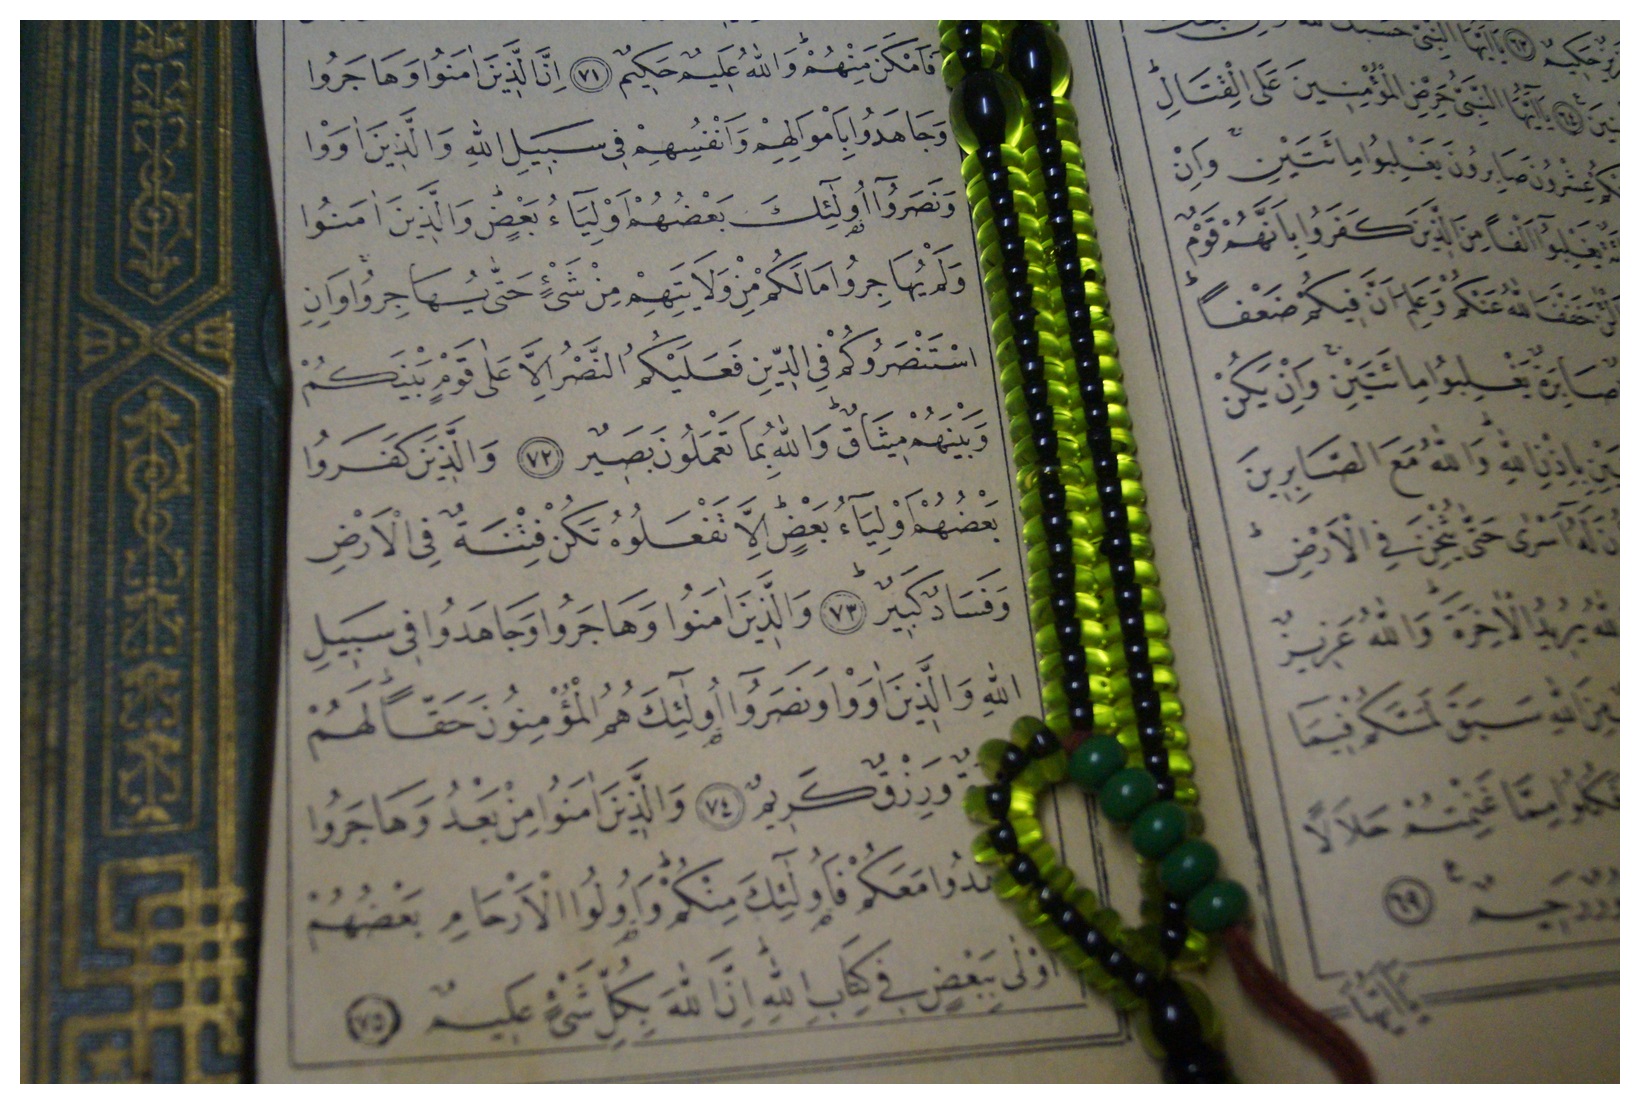 حَكِيمٌ ﴿٦٣﴾ يَٓا اَيُّهَا النَّبِيُّ حَسْبُكَ اللّٰهُ
﴿٦٤﴾ يَٓا اَيُّهَا النَّبِيُّ حَرِّضِ الْمُؤْمِنِينَ عَلَى الْقِتَالِۜ
عِشْرُونَ صَابِرُونَ يَغْلِبُوا مِائَتَيْنِۚ وَاِنْ
يَغْلِبُٓوا اَلْفًا مِنَ الَّذِينَ كَفَرُوا بِاَنَّهُمْ قَوْمٌ
خَفَّفَ اللّٰهُ عَنْكُمْ وَعَلِمَ اَنَّ فِيكُمْ ضَعْفًاۜ
صَابِرَةٌ يَغْلِبُوا مِائَتَيْنِۚ وَاِنْ يَكُنْ
بِاِذْنِ اللّٰهِۜ وَاللّٰهُ مَعَ الصَّابِرِينَ
لَهُٓ اَسْرٰى حَتّٰى يُثْخِنَ فِي الْاَرْضِۜ
يُرِيدُ الْاٰخِرَةَۜ وَاللّٰهُ عَزِيزٌ
مِنَ اللّٰهِ سَبَقَ لَمَسَّكُمْ فِيمَٓا
فَكُلُوا مِمَّا غَنِمْتُمْ حَلَالًا
رَحِيمٌ۟ ﴿٦٩﴾
يَٓا اَيُّهَا
فَاَمْكَنَ مِنْهُمْۜ وَاللّٰهُ عَلِيمٌ حَكِيمٌ ﴿٧١﴾ اِنَّ الَّذِينَ اٰمَنُوا وَهَاجَرُوا
وَجَاهَدُوا بِاَمْوَالِهِمْ وَاَنْفُسِهِمْ فِي سَبِيلِ اللّٰهِ وَالَّذِينَ اٰوَوْا
وَنَصَرُٓوا اُو۬لٰٓئِكَ بَعْضُهُمْ اَوْلِيَٓاءُ بَعْضٍۜ وَالَّذِينَ اٰمَنُوا
وَلَمْ يُهَاجِرُوا مَالَكُمْ مِنْ وَلَايَتِهِمْ مِنْ شَيْءٍ حَتّٰى يُهَاجِرُواۚ وَاِنِ
اسْتَنْصَرُوكُمْ فِي الدِّينِ فَعَلَيْكُمُ النَّصْرُ اِلَّا عَلٰى قَوْمٍ بَيْنَكُمْ
وَبَيْنَهُمْ مِيثَاقٌۜ وَاللّٰهُ بِمَا تَعْمَلُونَ بَصِيرٌ ﴿٧٢﴾ وَالَّذِينَ كَفَرُوا
بَعْضُهُمْ اَوْلِيَٓاءُ بَعْضٍۜ اِلَّا تَفْعَلُوهُ تَكُنْ فِتْنَةٌ فِي الْاَرْضِ
وَفَسَادٌ كَبِيرٌۜ ﴿٧٣﴾ وَالَّذِينَ اٰمَنُوا وَهَاجَرُوا وَجَاهَدُوا فِي سَبِيلِ
اللّٰهِ وَالَّذِينَ اٰوَوْا وَنَصَرُٓوا اُو۬لٰٓئِكَ هُمُ الْمُؤْمِنُونَ حَقًّاۜ لَهُمْ
وَرِزْقٌ كَرِيمٌ ﴿٧٤﴾ وَالَّذِينَ اٰمَنُوا مِنْ بَعْدُ وَهَاجَرُوا
مَعَكُمْ فَاُو۬لٰٓئِكَ مِنْكُمْۜ وَاُو۬لُوا الْاَرْحَامِ بَعْضُهُمْ
اَوْلٰى بِبَعْضٍ فِي كِتَابِ اللّٰهِۜ اِنَّ اللّٰهَ بِكُلِّ شَيْءٍ عَلِيمٌ ﴿٧٥﴾